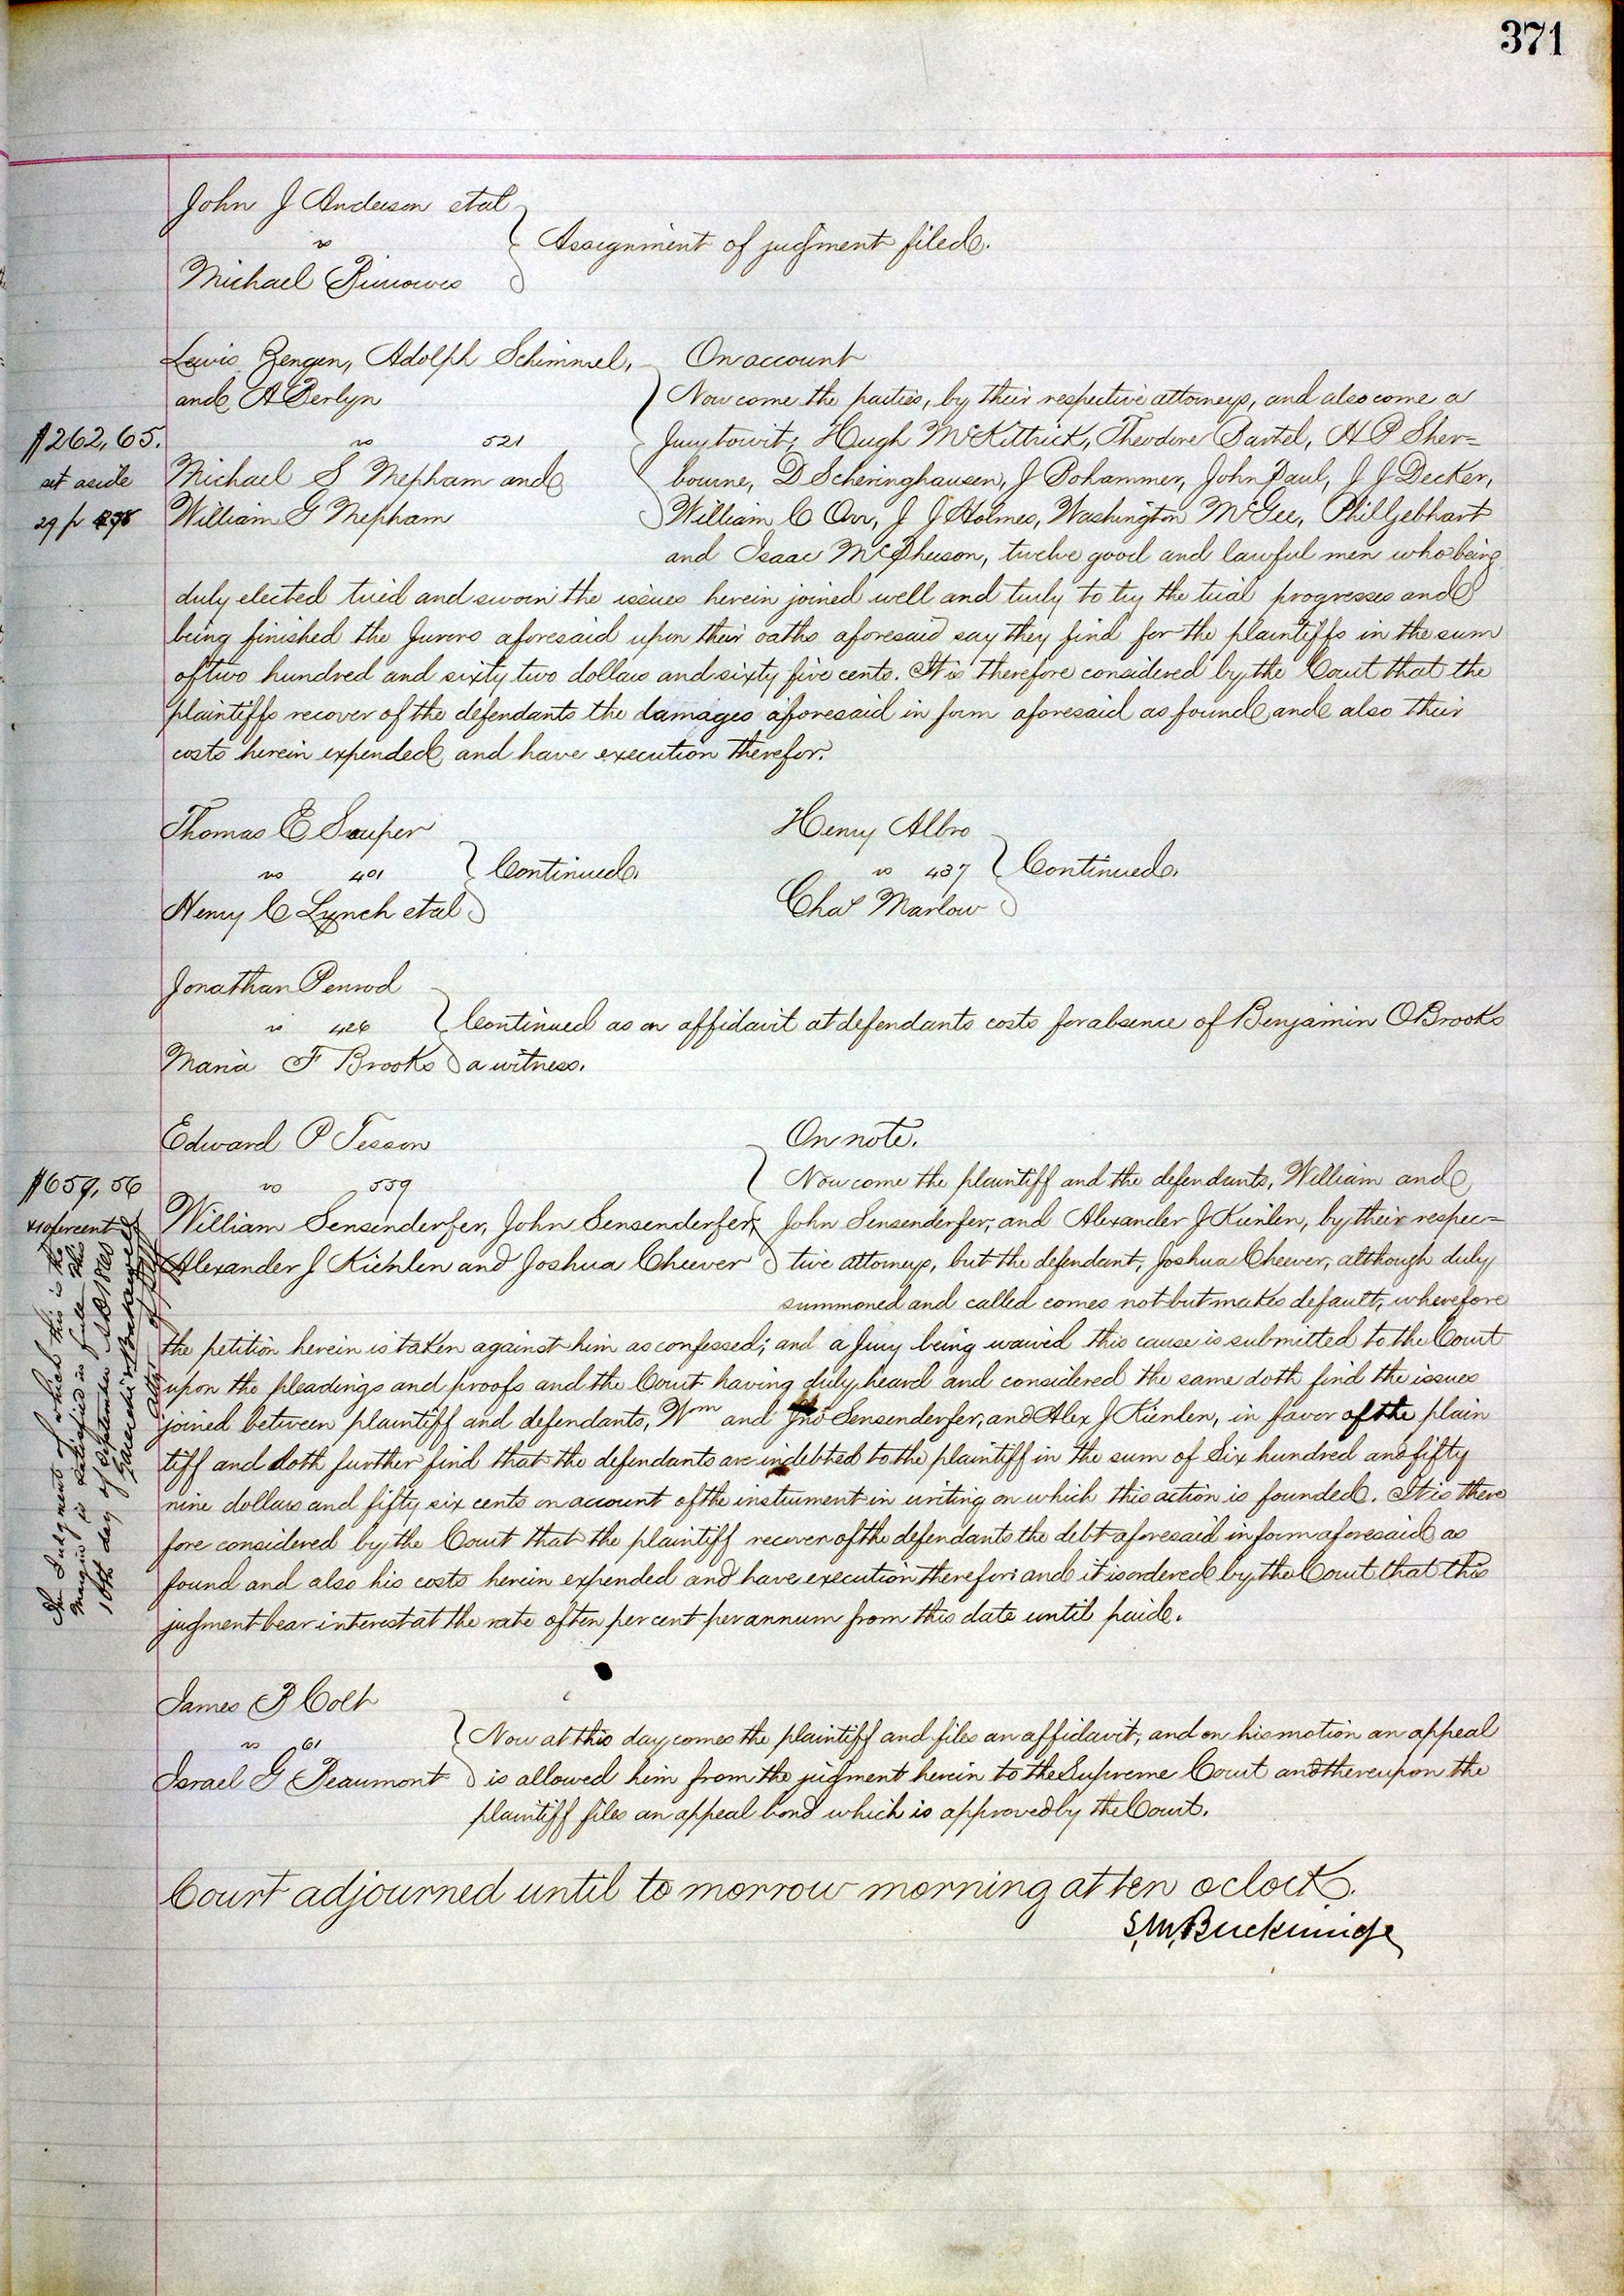 371
John J Anderson et al
vs
Michael
Assignment of judgment filed.
Lewis Zengen, Adolph Schimmel,
and A Berlyn
vs 521
Michael S Mepham and
William G Mepham
$262,65.
set aside
29 p
On account
Now come the parties, by their respective attorneys, and also come a
Jury towit; Hugh McKittrick, Theodore Bartel, H P Sher=
bourne, D Scheringhausen, J Bohammer, John Paul, J J Decker,
William C Orr, J J Holmes, Washington McGee, Phil Gebhart
and Isaac McPheeson, twelve good and lawful men who being
duly elected tried and sworn the issues herein joined well and truly to try the trial progresses and
being finished the Jurors aforesaid upon their oaths aforesaid say they find for the plaintiffs in the sum
of two hundred and sixty two dollars and sixty five cents. It is therefore considered by the Court that the
plaintiffs recover of the defendants the damages aforesaid in form aforesaid as found and also their
costs herein expended and have execution therefor.
Thomas E Souper
vs 401
Henry C Lynch et al
Continued.
Henry Albro
vs 437
Chas Marlow
Continued.
Jonathan Penrod
vs 426
Maria F Brooks
Continued as on affidavit at defendants costs for absence of Benjamin O Brooks
a witness.
Edward P Tesson
vs 559
William Sensenderfer, John Sensenderfer,
Alexander J Kienlen and Joshua Cheever
$659,56
x 10 per cent
The Judgment of which this is the
margin is satisfied in full this
10th day of September AD 1866
Atty of plff
On note.
Now come the plaintiff and the defendants, William and
John Sensenderfer, and Alexander J Kienlen, by their respec=
tive attorneys, but the defendant, Joshua Cheever, although duly
summoned and called comes not but makes default, wherefore
the petition herein is taken against him as confessed; and a Jury being waived this cause is submitted to the Court
upon the pleadings and proofs and the Court having duly heard and considered the same doth find the issues
joined between plaintiff and defendants, Wm and Jno Sensenderfer, and Alex J Kienlen, in favor of the plain
tiff and doth further find that the defendants are indebted to the plaintiff in the sum of Six hundred and fifty
nine dollars and fifty six cents on account of the instrument in writing on which this action is founded. It is there
fore considered by the Court that the plaintiff recover of the defendants the debt aforesaid in form aforesaid as
found and also his costs herein expended and have execution therefor: and it is ordered by the Court that this
judgment bear interest at the rate of ten per cent per annum from this date until paid.
James B Colt
vs 61
Israel G Beaumont
Now at this day comes the plaintiff and files an affidavit, and on his motion an appeal
is allowed him from the judgment herein to the Supreme Court and thereupon the
plaintiff files an appeal bond which is approved by the Court.
Court adjourned until to morrow morning at ten oclock.
S,M,Breckinridge